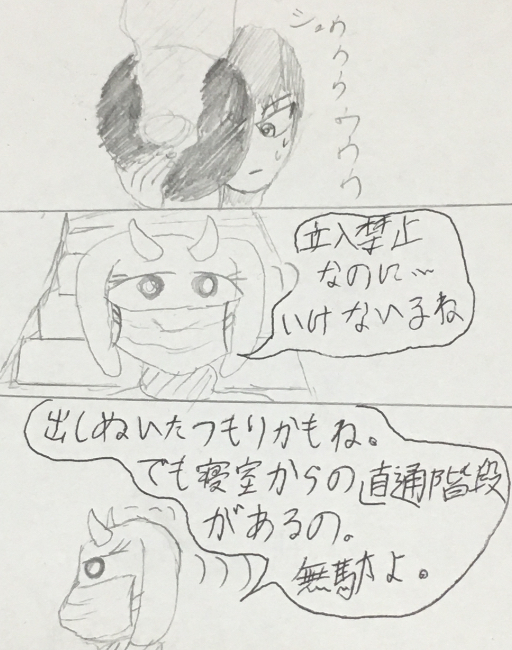 シュウウウウウウウ
立入禁止
なのに…
いけない子ね
出しぬいたつもりかもね。
でも寝室からの直通階段
があるの。
無駄よ。